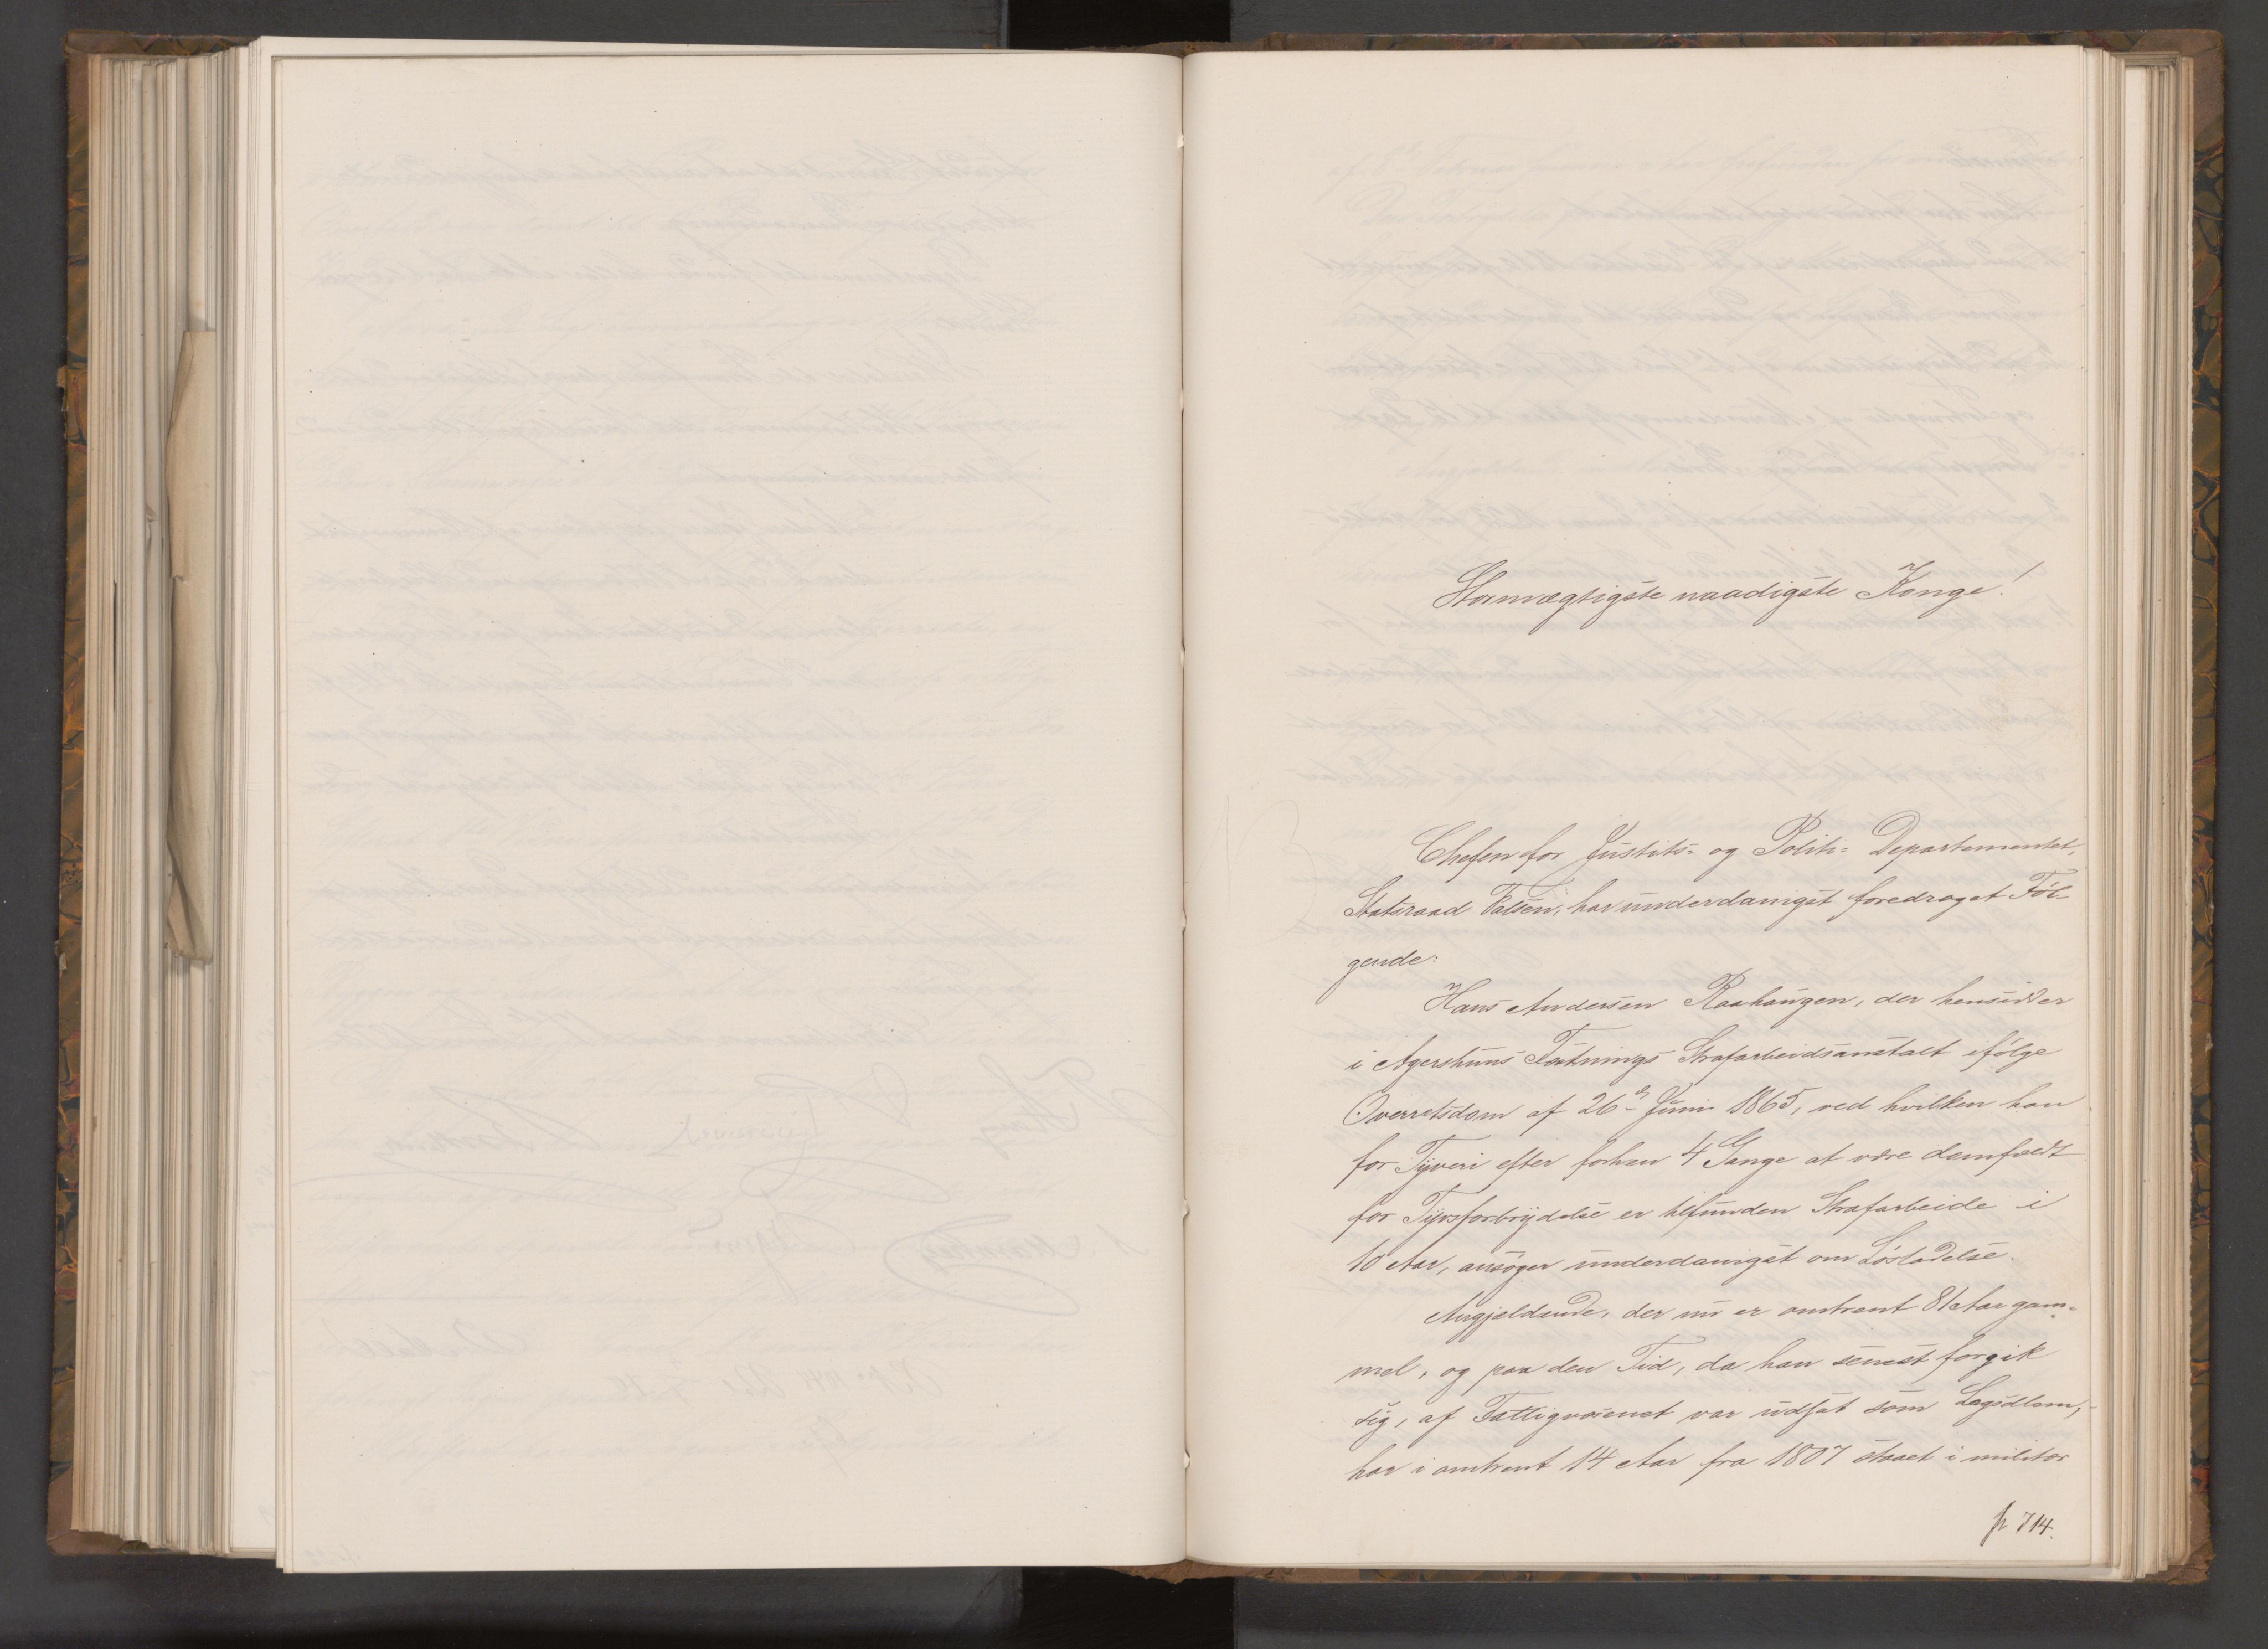 Stormægtigste naadigste Konge!
Chefen for Justits- og Politi- Departementet,
Statsraad Falsen, har underdanigst foredraget Føl-
gende:
Hans Andersen Raahaugen, der hensidder
i Agershuus Fæstnings Strafarbeidsanstalt ifølge
Overretsdom af 26de Juni 1865, ved hvilken han
for Tyveri efter forhen 4 Gange at være domfældt
for Tyvsforbrydelse er tilfunden Strafarbeide i
10 Aar, ansøger underdanigst om Løsladelse.
Angjeldende, der nu er omtrent 81 Aar gam-
mel, og paa den Tid, da han senest forgik
sig, af Fattigvæsenet var udsat som Lægdslem,
har i omtrent 14 Aar fra 1807 staaet i militær
p 714.